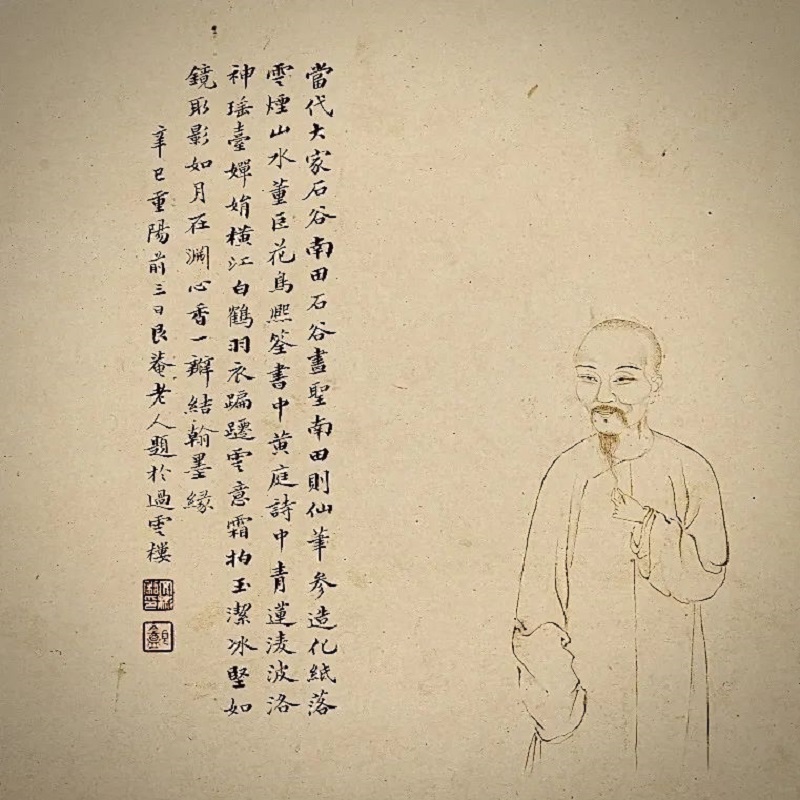 當代大家石谷南田石谷畫聖南田則仙筆參造化紙落
雲煙山水董巨花鳥熙筌書中黃庭詩中青蓮淩波洛
神瑤臺嬋娟橫江白鶴羽衣蹁躚雲意霜柏玉潔冰堅如
鏡取影如月在淵心香一瓣結翰墨緣
辛巳重陽前三日艮菴老人題於過雲樓